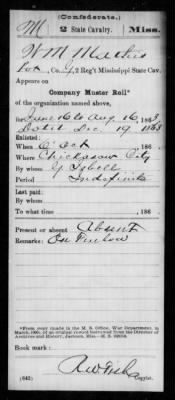 (Confederate.)
M 2 State Cavalry. Miss.
W M Mathis
Pvt, Co. G, 2 Reg't Mississippi State Cav.
Appears on
Company Muster Roll*
of the organization named above,
for June 16 to Aug 16, 1863.
Dated Dec. 19 1863
Enlisted:
When Oct , 186
Where Chickasaw City
By whom Y. Isbell
Period Indefinite
Last paid:
By whom
To what time , 186 .
Present or absent Absent
Remarks: On Furlow
*From copy made in the M. S. Office, War Department, in March, 1905, of an original record borrowed from the Director of Archives and History, Jackson, Miss.
Book mark:
(642) Copyist.